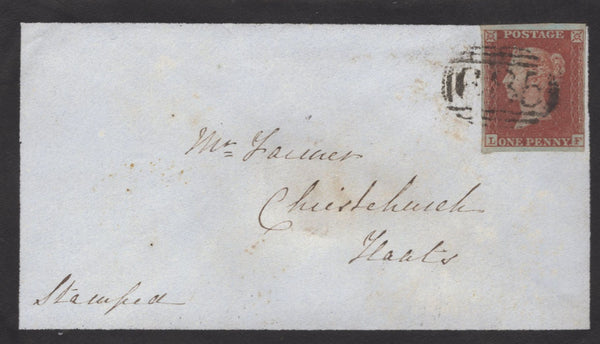 POSTAGE
L ONE PENNY F
Mr Farmer
Christchurch
Haats
Stamped